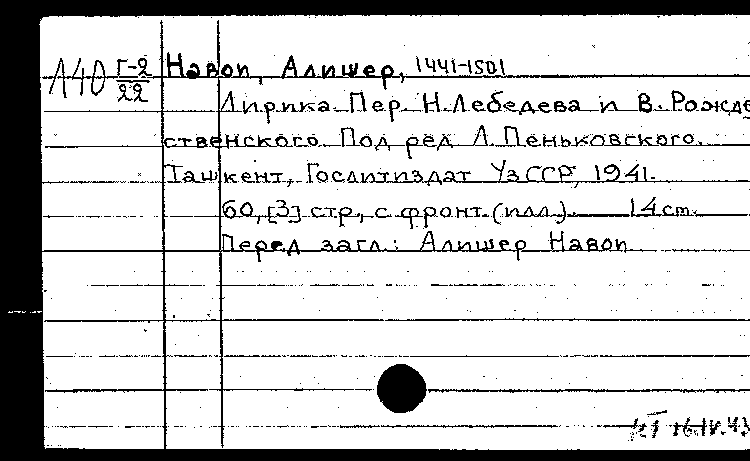 Л40 Г-2/22 Навои, Алишер, 1441-1501
Лирика Пер. Н. Лебедева и В. Рожде
ственского. Под ред Л. Пеньковского.
Ташкент, Гослитиздат УзССР, 1941.
60, [3] стр., с фронт. (илл.). 14 см.
Перед загл.: Алишер Навои
16.IV.43